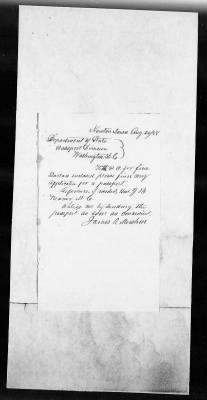 Newton Iowa Aug 29/88
Department of State
Passport Division
Washington D.C.
With N.O. for five
Dollars enclosed please find my
application for a passport.
Reference if needed, Hon.
M.C.
Oblige me by sending the
passport as soon as convenient.
James A.